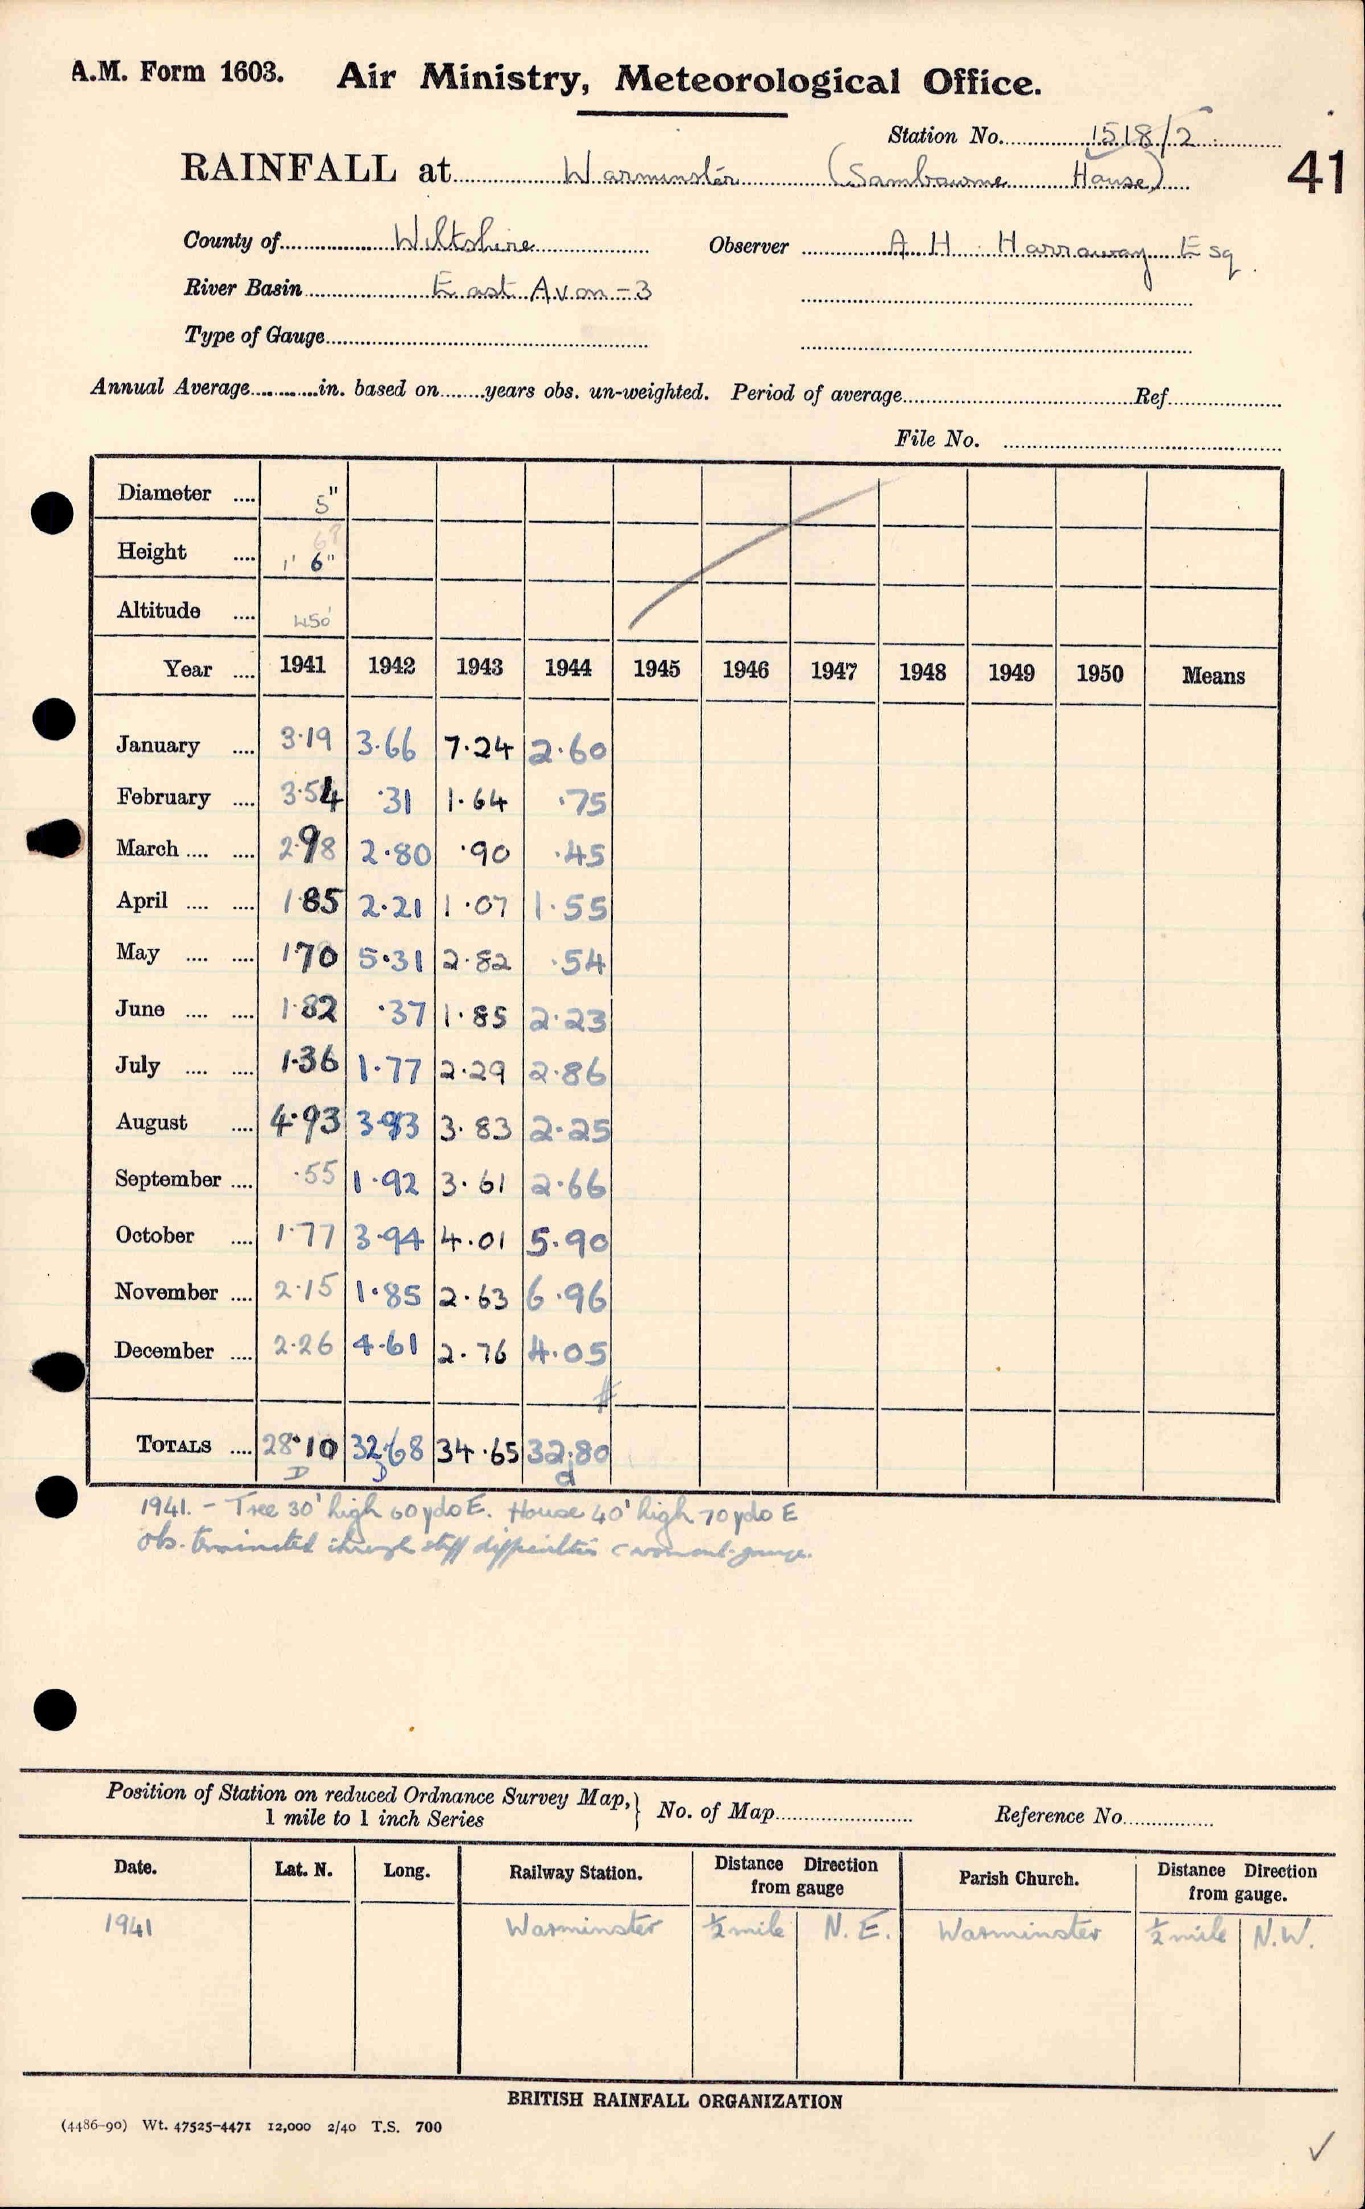 A.M. Form 1603. Air Ministry, Meteorological Office.
Station No. 1518/2
RAINFALL at Warminster (Sambourne House) 41
County of Wiltshire Observer A H Harraway Esq.
River Basin East Avon-3
Type of Gauge
Annual Average in. based on years obs. un-weighted. Period of average Ref
File No.
Diameter 5"
Height 1' 6"
Altitude 450'
Year 1941 1942 1943 1944 1945 1946 1947 1948 1949 1950 Means
January 3.19 3.66 7.24 2.60
February 3.54 .31 1.64 .75
March 2.98 2.80 .90 .45
April 1.85 2.21 1.07 1.55
May 1.70 5.31 2.82 .54
June 1.82 .37 1.85 2.23
July 1.36 1.77 2.29 2.86
August 4.93 3.93 3.83 2.25
September .55 1.92 3.61 2.66
October 1.77 3.94 4.01 5.90
November 2.15 1.85 2.63 6.96
December 2.26 4.61 2.76 4.05
TOTALS 28.10 32.68 34.65 32.80
D D d
1941. - Tree 30' high 60 yds E. House 40' high 70 yds E
obs. terminated through staff difficulties
Position of Station on reduced Ordnance Survey Map, } No. of Map Reference No.
1 mile to 1 inch Series
Date. Lat. N. Long. Railway Station. Distance Direction from gauge Parish Church. Distance Direction from gauge.
1941 Warminster ½ mile N. E. Warminster ½ mile N.W.
BRITISH RAINFALL ORGANIZATION
(4486-90) Wt. 47525-4471 12,000 2/40 T.S. 700